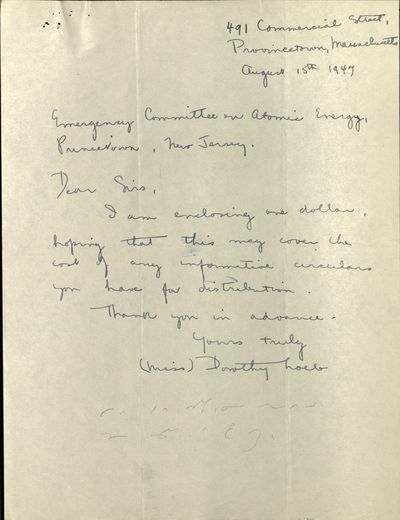 491 Commercial Street,
Provincetown, Massachusetts
August 15th 1947
Emergency Committee on Atomic Energy,
Princetown, New Jersey.
Dear Sirs,
I am enclosing one dollar,
hoping that this may cover the
cost of any informative circulars
you have for distribution.
Thank you in advance.
Yours truly
(Miss) Dorothy Loeb